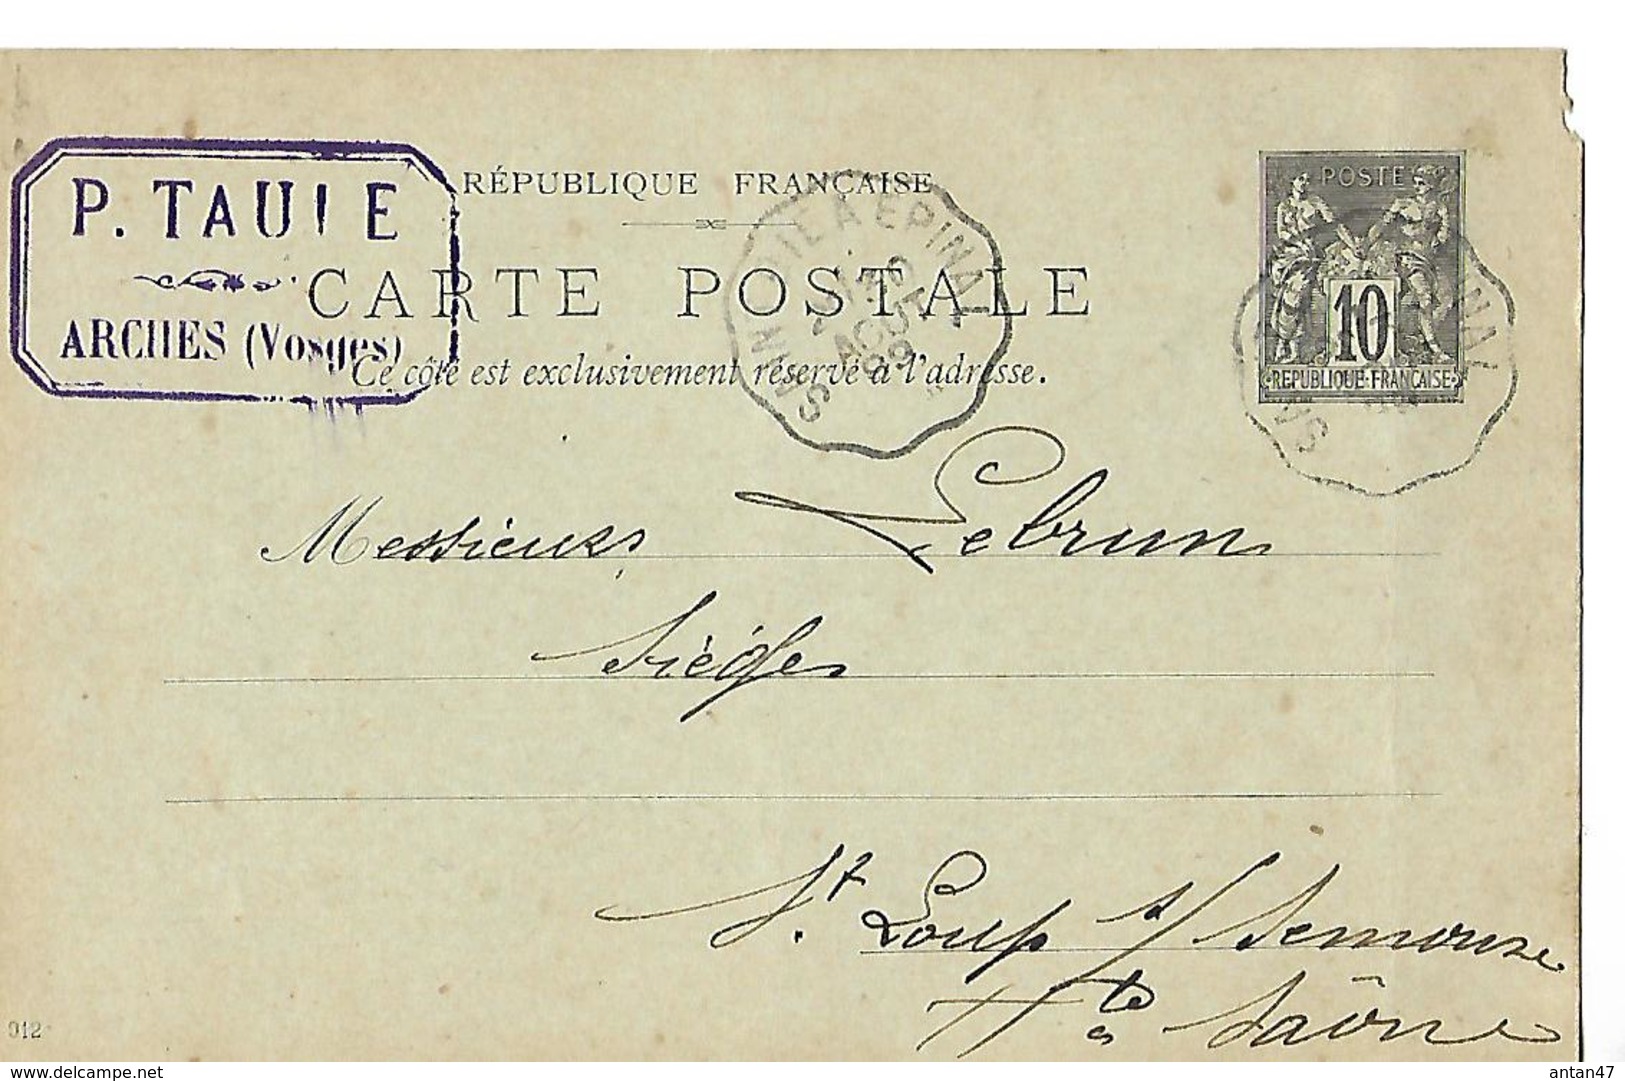 P. TAULE
ARCHES (Vosges)
RÉPUBLIQUE FRANÇAISE
CARTE POSTALE
Ce côté est exclusivement réservé à l'adresse.
POSTE
10
REPUBLIQUE FRANÇAISE
AOUT
99
Messieurs Lebrun
Siéges
St. Loup s/ Semouse
Hte Saône
012
antan47